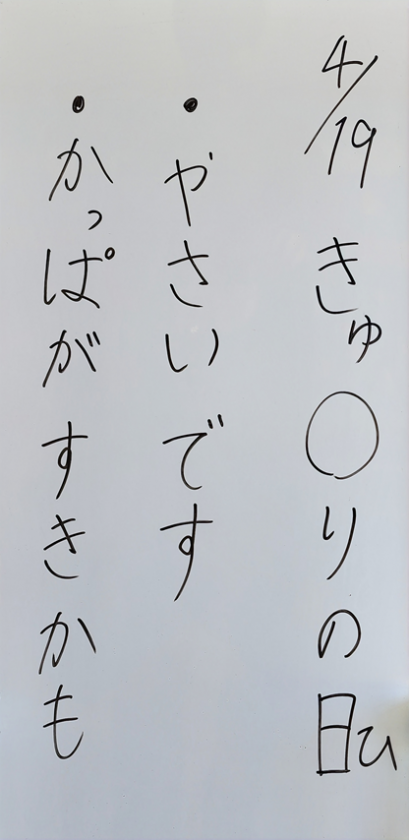 4/19 きゅ〇りの日ひ
・やさいです
・かっぱがすきかも